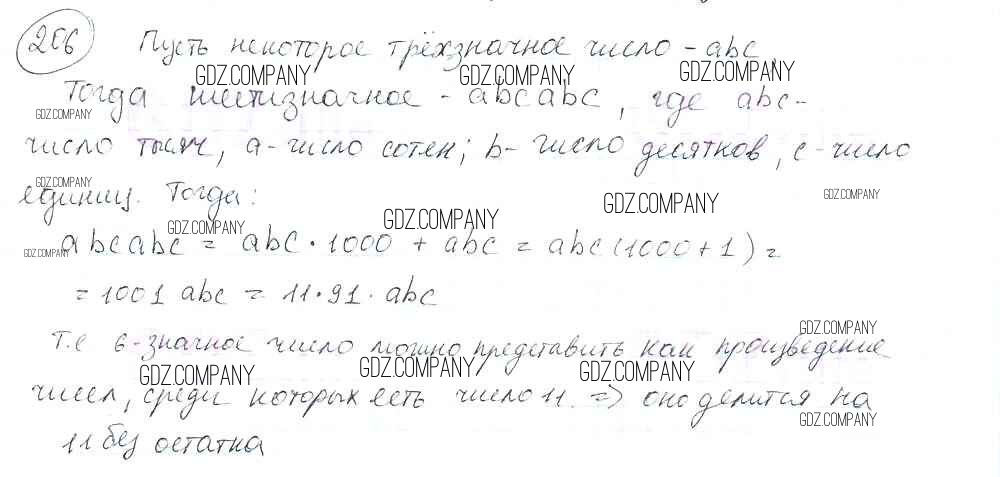 206 Пусть некоторое трёхзначное число - abc,
GDZ.COMPANY GDZ.COMPANY GDZ.COMPANY
Тогда шестизначное - abcabc, где abc-
GDZ.COMPANY
число тысяч, a-число сотен; b- число десятков, c-число
GDZ.COMPANY GDZ.COMPANY
единиц. Тогда:
GDZ.COMPANY GDZ.COMPANY GDZ.COMPANY
abcabc = abc·1000 + abc = abc(1000+1) =
GDZ.COMPANY
= 1001 abc = 11·91·abc
GDZ.COMPANY
Т.е 6-значное число можно представить как произведение
GDZ.COMPANY GDZ.COMPANY GDZ.COMPANY
чисел, среди которых есть число 11. => оно делится на
GDZ.COMPANY
11 без остатка